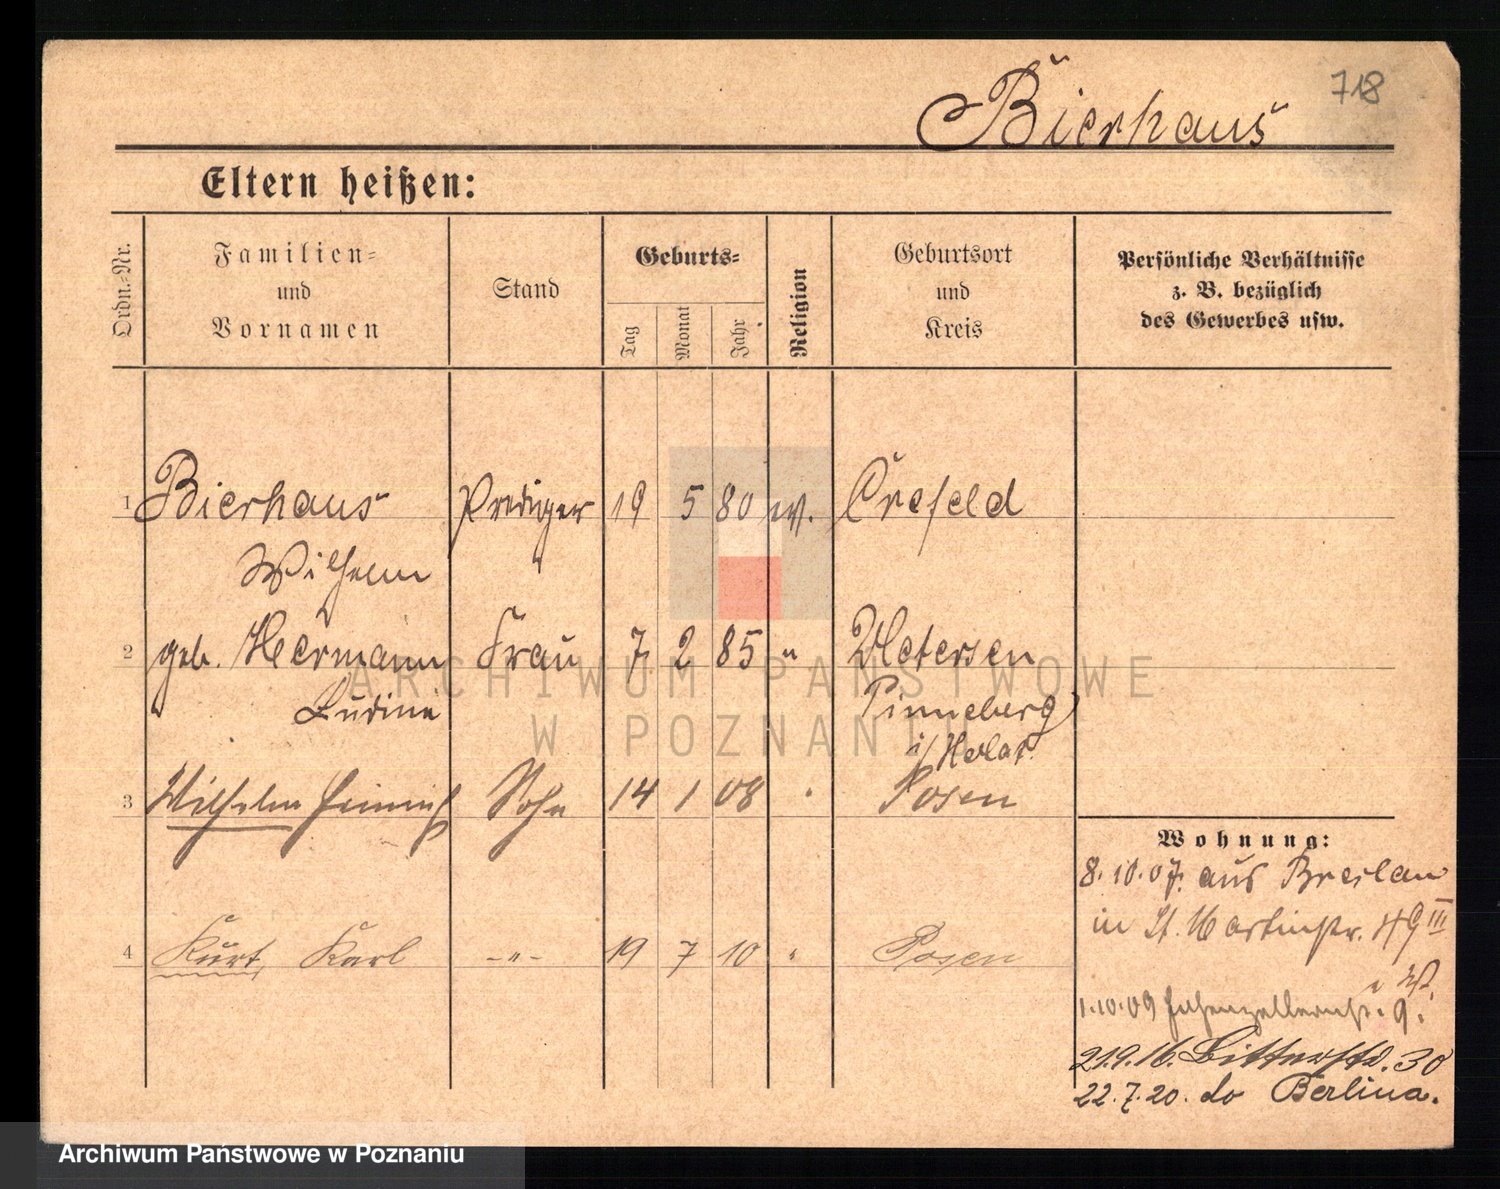 718
Bierhaus
Eltern heißen:
Ordn.-Nr.
Familien- und Vornamen
Stand
Geburts-
Tag
Monat
Jahr
Religion
Geburtsort und Kreis
Persönliche Verhältnisse
z. B. bezüglich
des Gewerbes usw.
1 Bierhaus Prediger 19 5 80 ev. Crefeld
Wilhelm
2 geb. Hermann Frau 7 2 85 " Uetersen
Ludine Pinneberg
i/
3 Wilhelm Heinrich Sohn 14 1 08 " Posen
Wohnung:
8.10.07. aus Breslau
in St. Martinstr. 49 III
4 Kurt Karl -"- 19 7 10 " Posen
1.10.09 9.
21.9.16. Bitterstr. 30
22.7.20. do Berlina.
ARCHIWUM PAŃSTWOWE
W POZNANIU
Archiwum Państwowe w Poznaniu